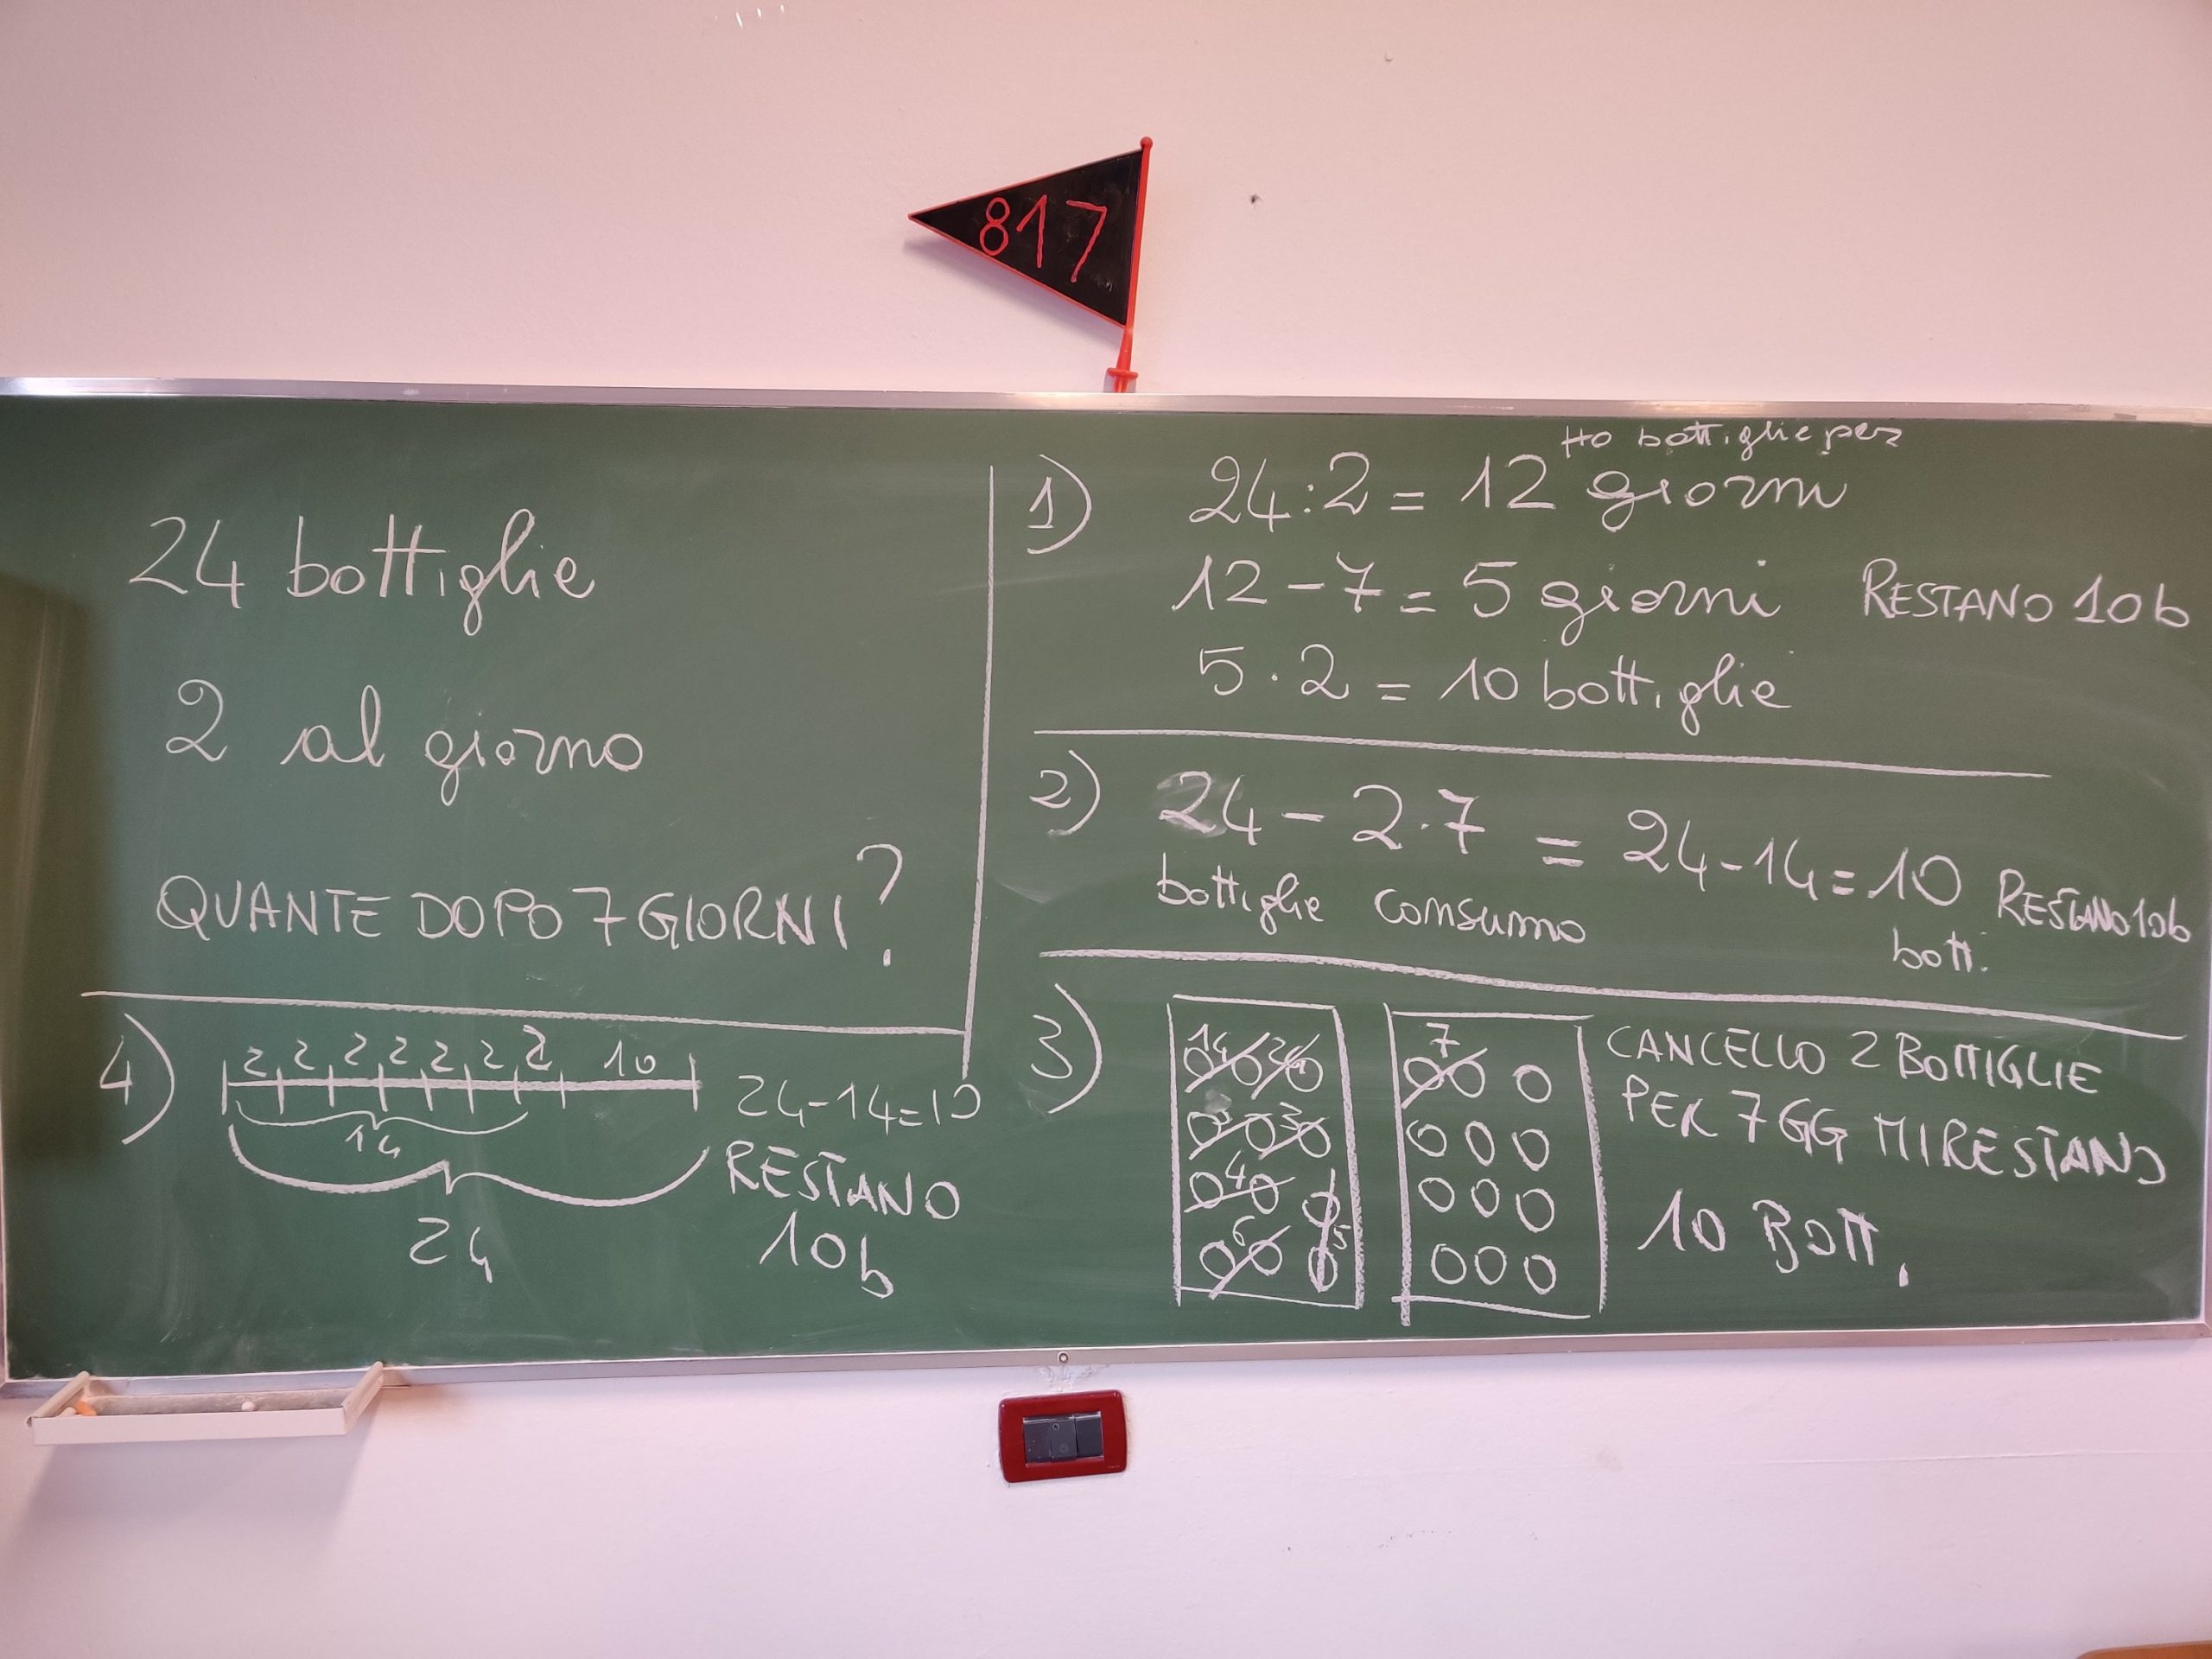 817
24 bottiglie
2 al giorno
QUANTE DOPO 7 GIORNI?
1)
Ho bottiglie per
24:2 = 12 giorni
12 - 7 = 5 giorni RESTANO 10b
5 · 2 = 10 bottiglie
2) 24 - 2·7 = 24-14=10 RESTANO 10b
bottiglie consumo bott.
3)
1 2
3
4
5
6
7
CANCELLO 2 BOTTIGLIE
PER 7 GG MI RESTANO
10 BOTT.
4)
2 2 2 2 2 2 2 10
14
24
24-14=10
RESTANO
10b